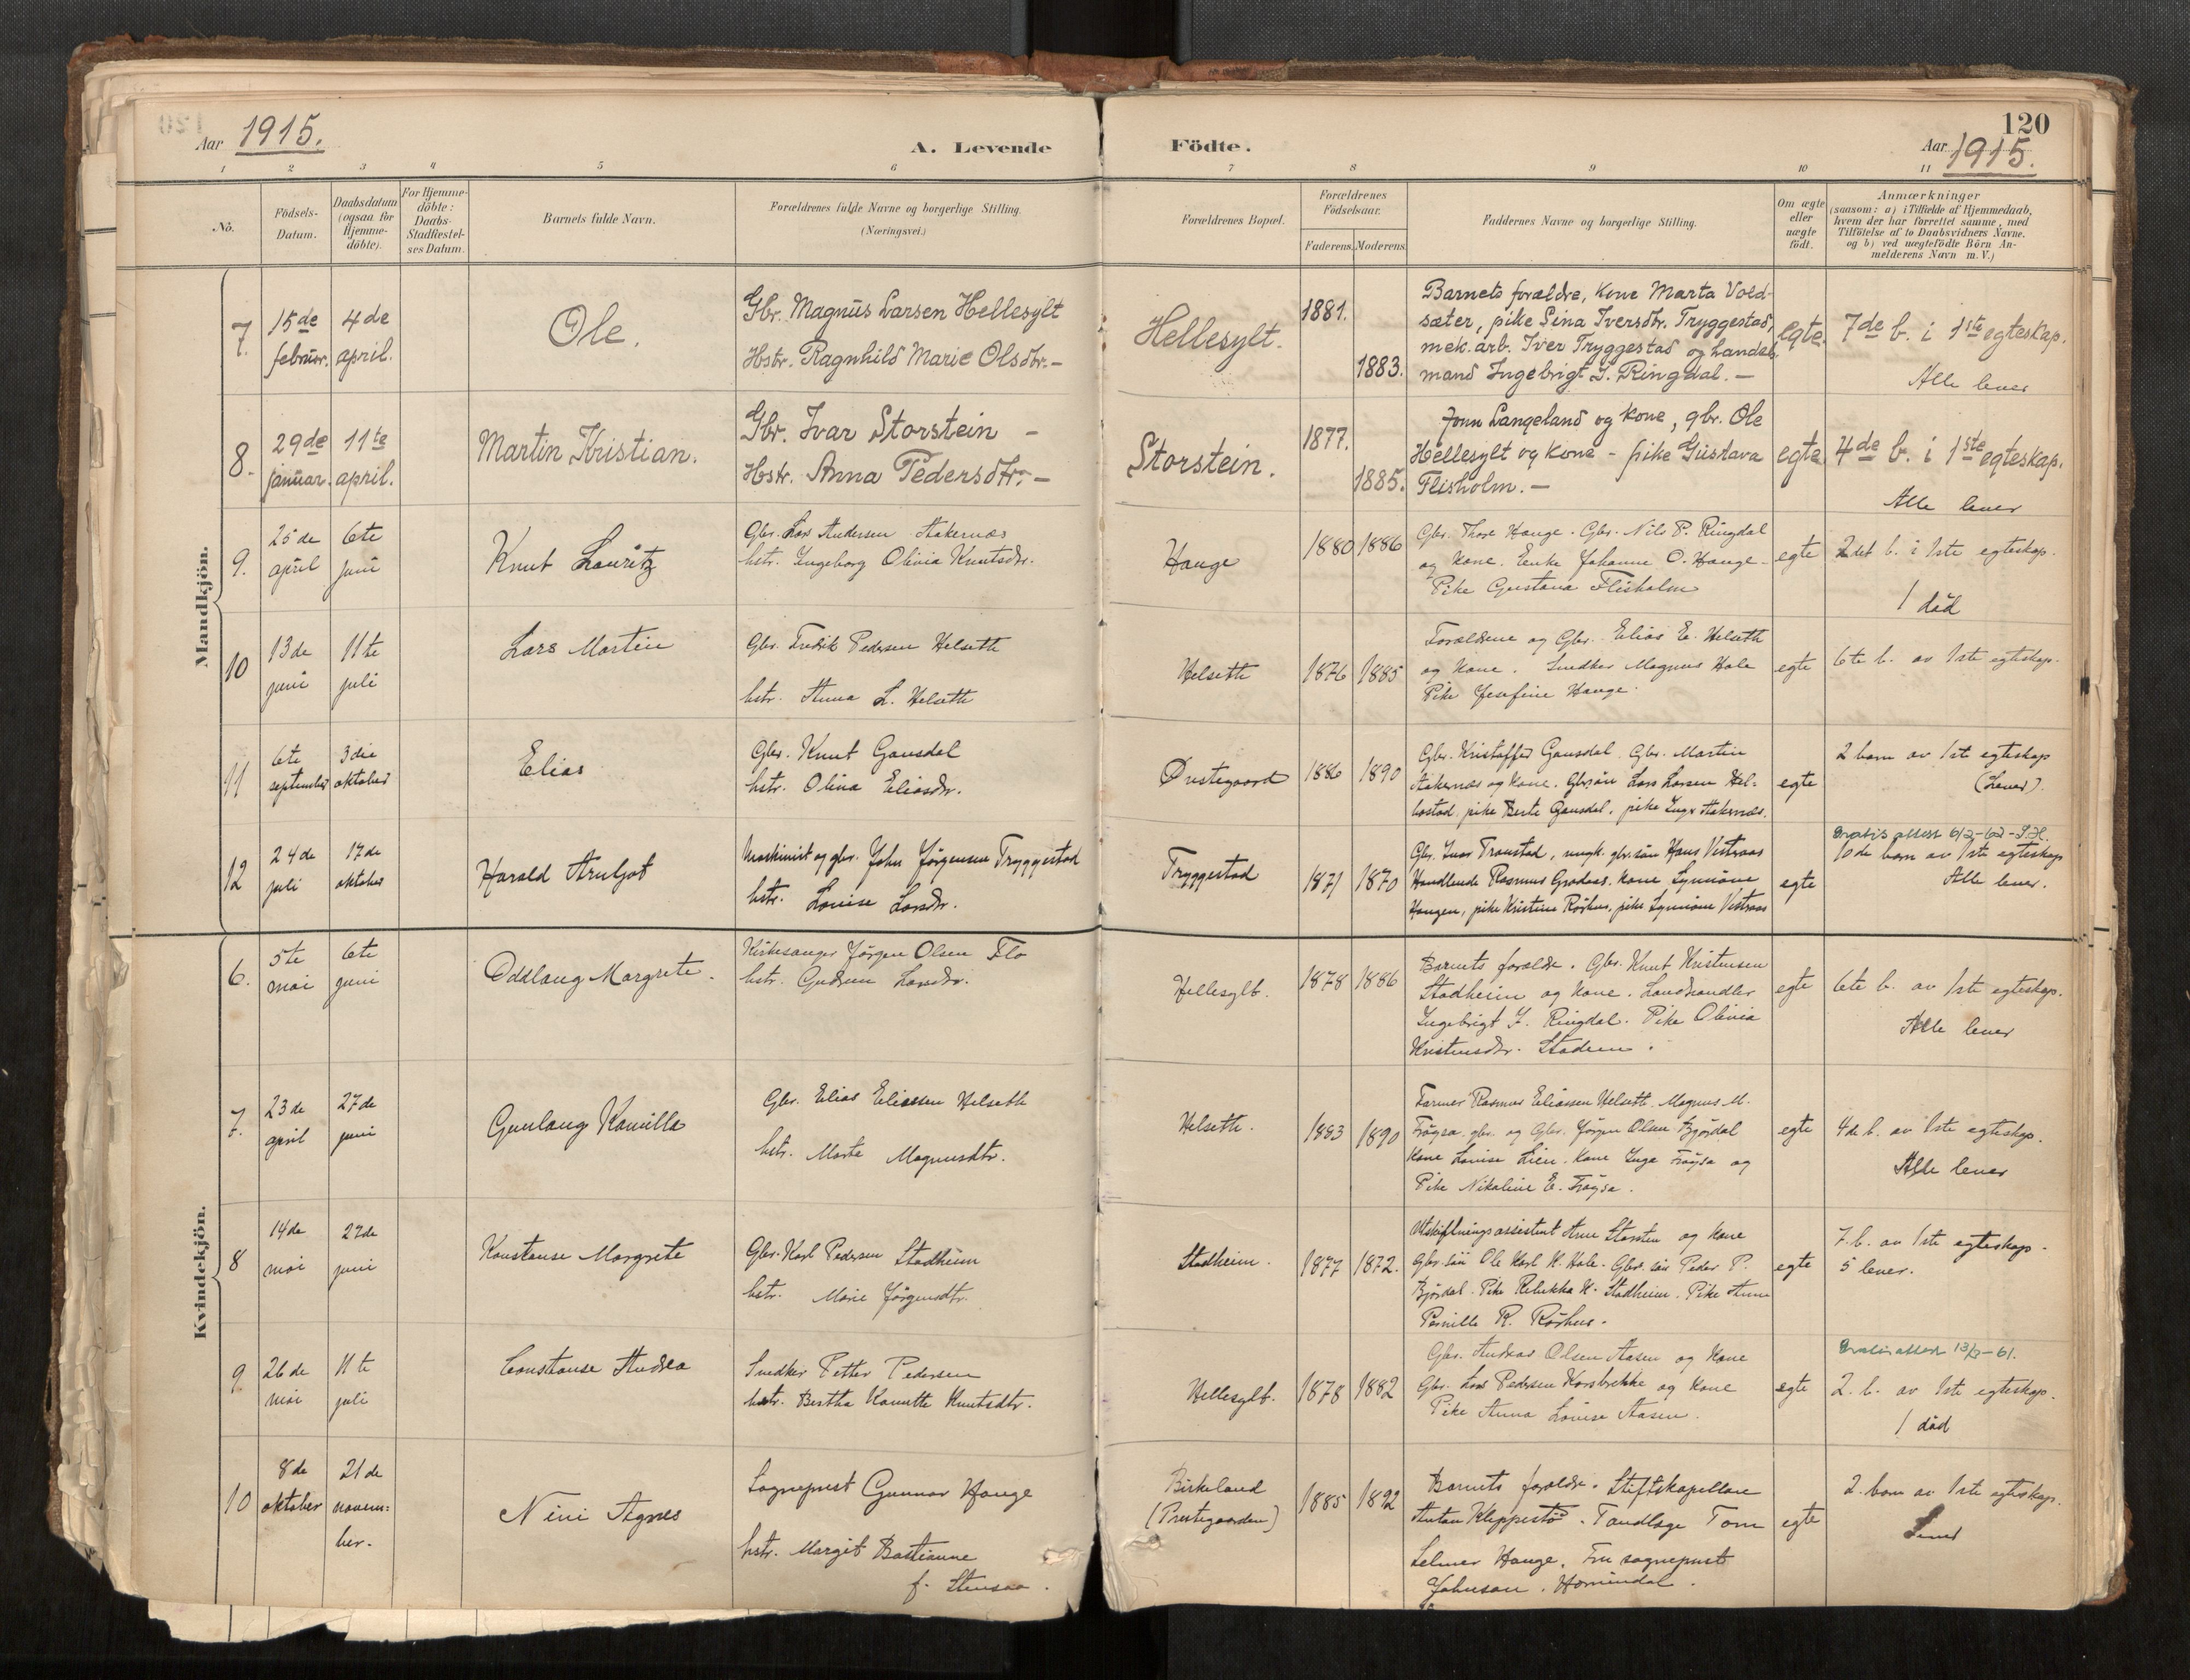 Aar 1915.
A. Levende Födte.
120
Aar 1915.
1 2 3 4 5 6 7 8 9 10 11
No.
Födsels-Datum.
Daabsdatum (ogsaa for Hjemmedöbte).
For Hjemmedöbte: Daabs-Stadfæstelses Datum.
Barnets fulde Navn.
Forældrenes fulde Navne og borgerlige Stilling.
(Næringsvei.)
Forældrenes Bopæl.
Forældrenes Födselsaar.
Faderens. Moderens.
Faddernes Navne og borgerlige Stilling.
Om ægte eller uægte födt.
Anmærkninger
(saasom: a) i Tilfælde af Hjemmedaab,
hvem der har forrettet samme, med
Tilföielse af to Daabsvidners Navne.
og b) ved uægtefödte Börn Anmelderens Navn m. V.)
Mandkjön.
7. 15de februar. 4de april.
Ole.
Gbr. Magnus Larsen Hellesylt
Hstr. Ragnhild Marie Olsdtr. -
Hellesylt.
1881. 1883.
Barnets forældre, kone Marta Vold-
sæter, pike Sina Iversdtr. Tryggestad,
mek. arb. Iver Tryggestad og handels
mand Ingebrigt J. Ringdal. -
egte.
7de b. i 1ste egteskap.
Alle lever
8. 29de januar. 11te april.
Martin Kristian.
Gbr. Ivar Storstein -
Hstr. Anna Pedersdtr. -
Storstein.
1877. 1885.
Jonn Langeland og kone, gbr. Ole
Hellesylt og kone - pike Gustava
Flisholm. -
egte.
4de b. i 1ste egteskap.
Alle lever
9. 25de april 6te juni
Knut Lauritz
Gbr. Lars Andersen Stakernæs
hstr. Ingeborg Olivia Knutsdtr.
Hauge
1880 1886
Gbr. Thore Hauge. Gbr. Nils P. Ringdal
og kone. Enke Johanne O. Hauge.
Pike Gustava Flisholm
egte
2det b. i 1ste egteskap.
1 död
10 13de juni 11te juli
Lars Martin
Gbr. Fredrik Pedersen Helseth
hstr. Anna L. Helseth
Helseth
1876 1885
Forældrene og Gbr. Elias E. Helseth
og kone. Snedker Magnus Hole
Pike Josefine Hauge.
egte
6te b. av 1ste egteskap.
11 6te september 3die oktober
Elias
Gbr. Knut Gausdal
hstr. Olina Eliasdtr.
Øvstegaard
1886 1890
Gbr. Kristoffer Gausdal. Gbr. Martin
Stakernæs og kone. Gbr.sön Lars Larsen Hel-
hostad. pike Berte Gausdal, pike Inga Stakernæs.
egte
2 barn av 1ste egteskap
(Lever).
12 24de juli 17de oktober
Harald Arnljot
Maskinist og gbr. John Jörgensen Tryggestad
hstr. Lovise Larsdtr.
Tryggestad
1871 1870
Gbr. Ivar Tronstad, ungk. gbr. sön Hans Vestraas
Handlende Rasmus Gradaas. kone Synnöve
Haugen, pike Kristine Röshus, pike Synnöve Vestraas
egte
Gratis attest 6/2-62-
10de barn av 1ste egteskap
Alle lever.
Kvindekjön.
6. 5te mai 6te juni
Oddlaug Margrete.
Kirkesanger Jörgen Olsen Flo
hstr. Gudrun Larsdtr.
Hellesylt.
1878 1886
Barnets forældre. Gbr. Knut Kristensen
Stadheim og kone. Landhandler
Ingebrigt J. Ringdal. Pike Olivia
Kristensdtr. Stadem.
egte
6te b. av 1ste egteskap.
Alle lever
7. 23de april 27de juni
Gunlaug Kamilla
Gbr. Elias Eliassen Helseth
hstr. Marta Magnusdtr.
Helseth.
1883 1890
Farmer Rasmus Eliassen Helseth. Magnus M.
Fröysa. gbr. og Gbr. Jörgen Olsen Bjørdal
Kone Lovise Lien. Kone Inga Fröysa og
Pike Nikoline E. Fröysa.
egte
4de b. av 1ste egteskap.
Alle lever
8 14de mai 27de juni
Konstanse Margrete
Gbr. Karl Pedersen Stadheim
hstr. Marie Jörgensdtr.
Stadheim.
1877 1872.
Utskiftningsassistent Arne Storsten og kone
Gbr. sön Ole Karl K. Hole. Gbr. sön Peder P.
Bjørdal. Pike Rebekka K. Stadheim. Pike Anna
Pernille R. Röshus.
egte
7. b. av 1ste egteskap.
5 lever.
9 26de mai 11te juli
Constanse Andrea
Snedker Petter Pedersen
hstr. Bertha Kanutte Knutsdtr.
Hellesylt.
1878 1882
Gbr. Andreas Olsen Aasen og kone
Gbr. Lars Pedersen Korsbrekke og kone
Pike Anna Lovise Aasen.
egte
Gratis attest 13/3-61.
2. b. av 1ste egteskap.
1 död
10 8de oktober 21de november.
Nini Agnes
Sogneprest Gunnar Hauge
hstr. Margit Bastianne
f. Stensaa.
Birkeland
(Prestegaarden)
1885 1892
Barnets forældre. Stiftskapellan
Anton Kleppestø. Tandlæge Tom
Selmer Hauge. Fru sogneprest
Johnson. Hornindal.
egte
2. barn av 1ste egteskap.
Lever